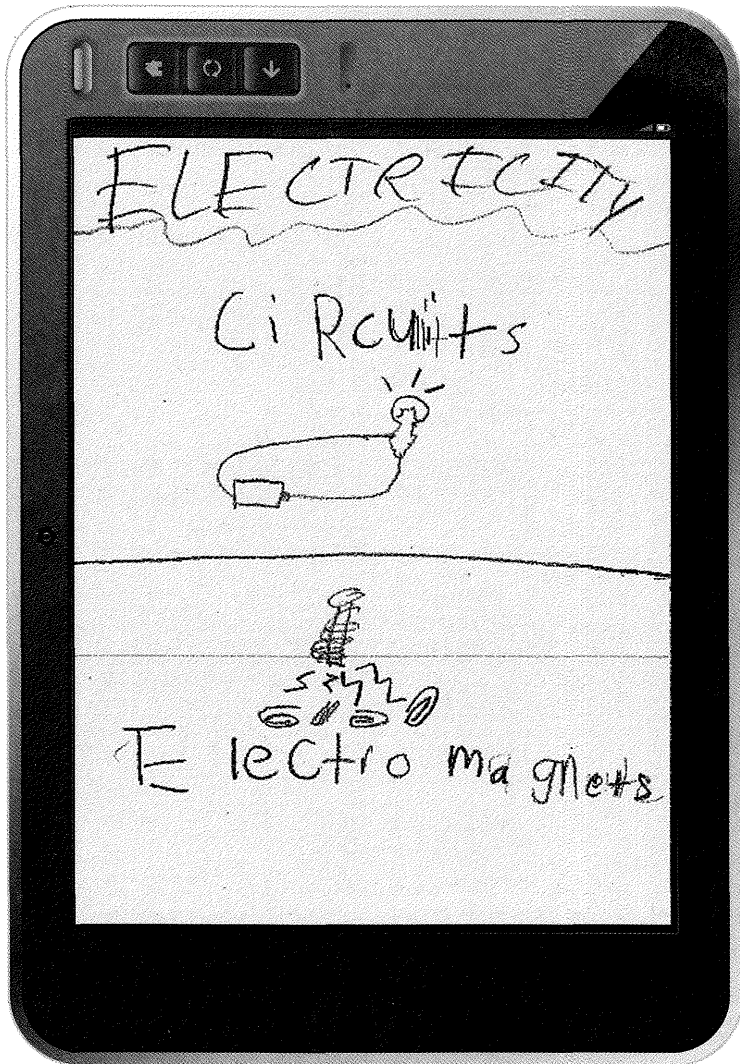 ELECTRICITY
CiRcuits
Electro magnets